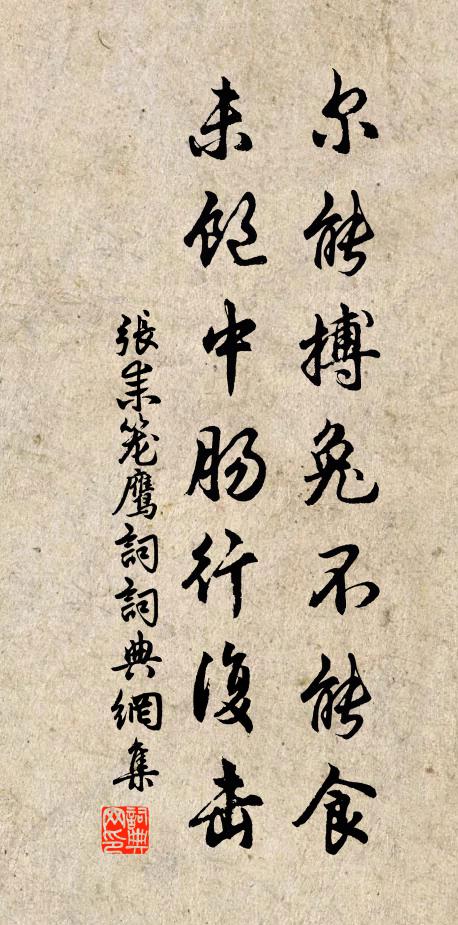 尔能搏兔不能食
未饱中肠行復击
張耒笼鹰詞詞典網集
詞典网印